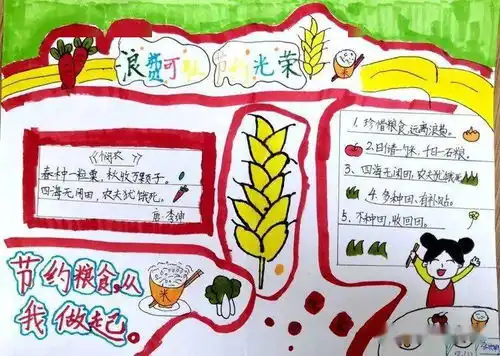 浪费可耻 节约光荣
《悯农》
春种一粒粟,秋收万颗子。
四海无闲田,农夫犹饿死。
唐·李绅
1、珍惜粮食,远离浪费。
2、日储一味,千日一石粮。
3、四海无闲田,农夫犹饿死。
4、多种田,有补贴。
5、不种田,收回田。
米
节约粮食,从
我做起。